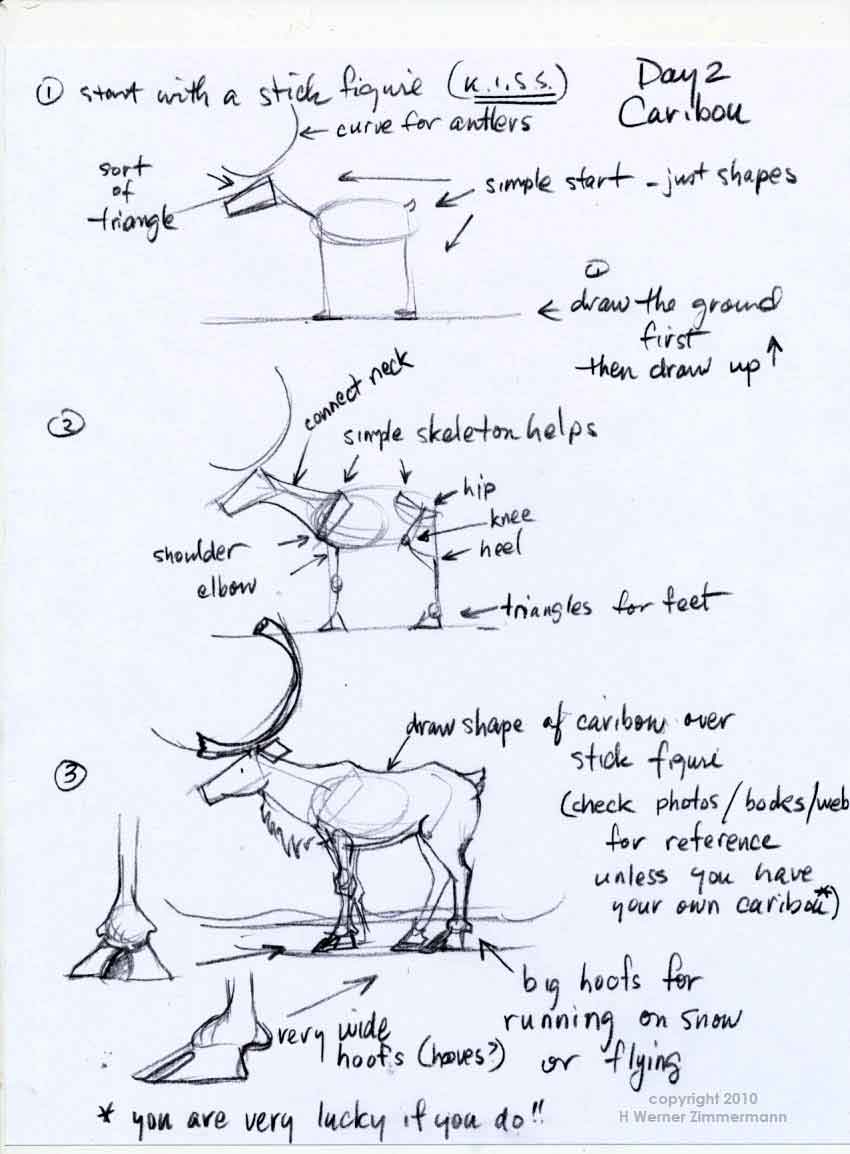 ① start with a stick figure (K.I.S.S.)
Day 2
Caribou
← curve for antlers
sort
of
triangle
simple start - just shapes
①
← draw the ground
first
then draw up ↑
②
connect neck
simple skeleton helps
hip
knee
heel
shoulder
elbow
triangles for feet
③
draw shape of caribou over
stick figure
(check photos/books/web
for reference
unless you have
your own caribou*)
big hoofs for
running on snow
or flying
very wide
hoofs (hooves?)
* you are very lucky if you do!!
copyright 2010
H Werner Zimmermann